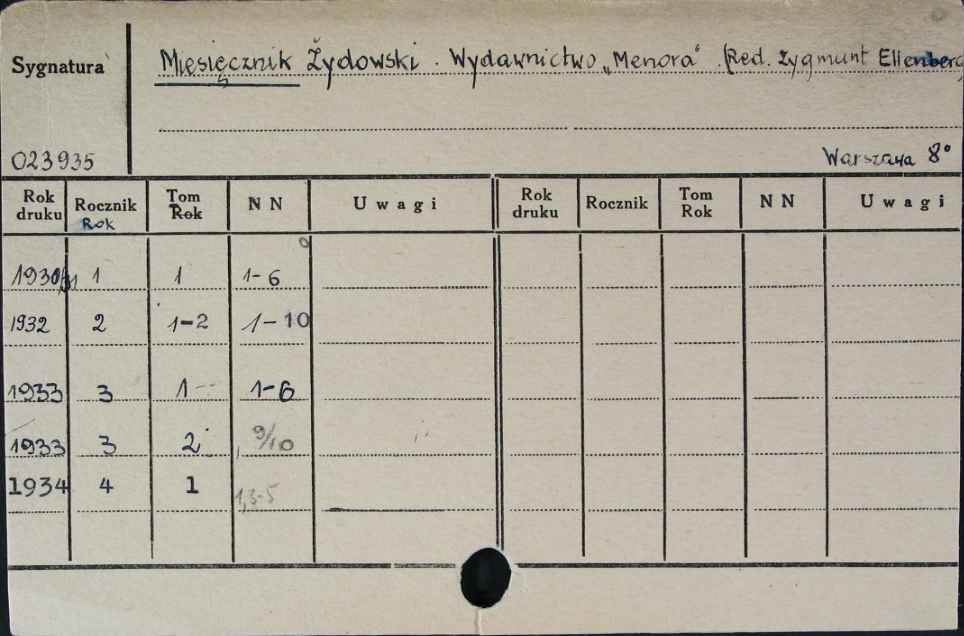 Sygnatura
Miesięcznik Żydowski. Wydawnictwo „Menora". (Red. Zygmunt Ellenberg
023935
Warszawa 8°
Rok druku Rocznik Rok Tom Rok NN Uwagi Rok druku Rocznik Tom Rok NN Uwagi
1930/31 1 1 1-6
1932 2 1-2 1-10
1933 3 1 1-6
1933 3 2 9/10
1934 4 1 1,3-5